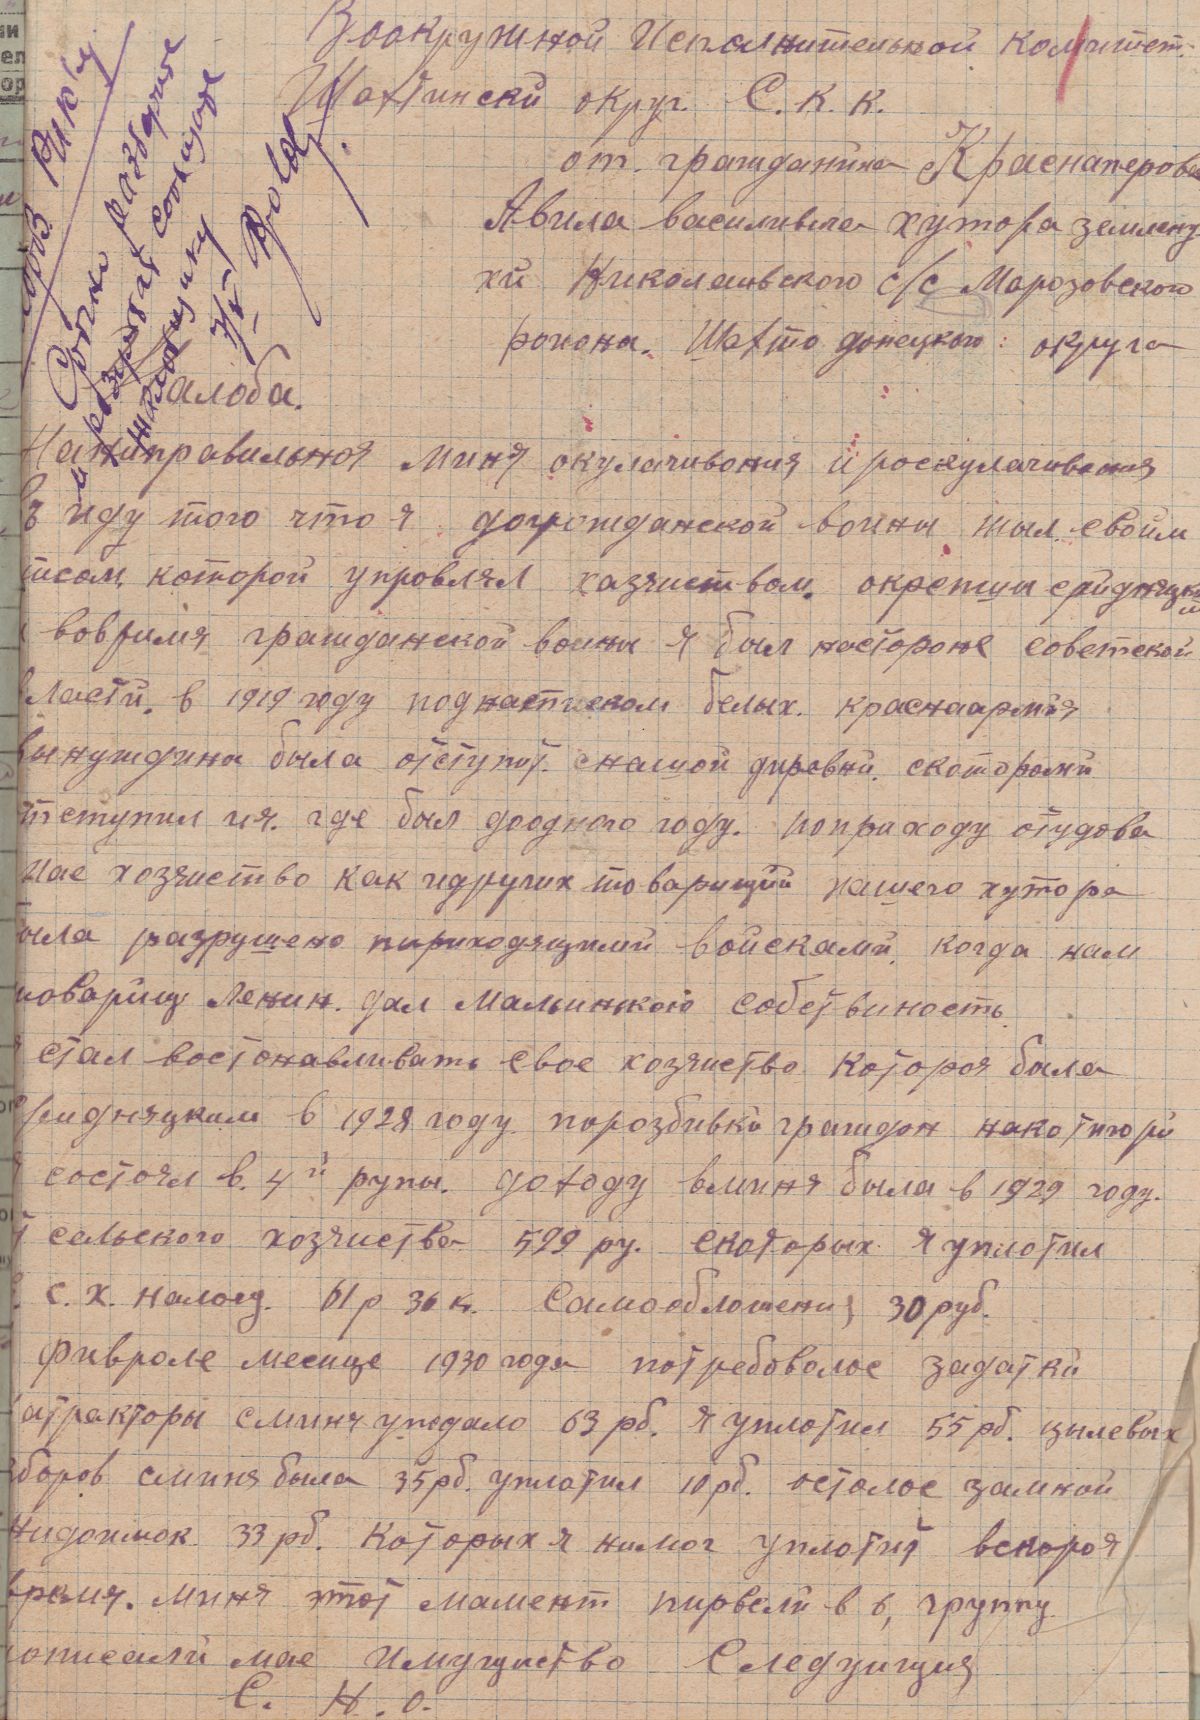 Воокружной Исполнительной комитет.
Шахтински округ. С. К. К.
от. гражданина Краснаперова
Авила василивича хутора землену
хи Николаивского с/с Марозовского
раиона. Шахто донецкого округа
Жалоба.
На нипровильноя миня окулачивония и роскулачивония
въ иду того что я дограждонской воины жыл своим
тцом, которой упровлял хазяиством. окрепшы сридняцки
и вовримя гражданской воины я был настороне советской
власти. в 1919 году поднатиском белых. краснаармия
вынуждина была отступит. снашой диревни. скоторыми
отступил ия. где был доодного году. поприходу оттудова
мае хозяиство как идругих товарищий нашего хутора
была разрушено пириходящими войсками. когда нам
товарищ Ленин. дал малинькою собствиность
я стал востонавливать свое хозяиство которое была
сридняцким в 1928 году порозбивки граждон накотигори
я состоял в. 4й групы. доходу вминя была в 1929 году.
сельского хозяиства 599 ру. скоторых я уплотил
с. х. налогу. 61 р 36 к. Самообложения 30 руб.
Феврале месице 1930 года потребоволос задатки
натракторы сминя упадало 63 рб. я уплотил 55 рб. цылевых
зборов сминя была 35 рб. уплотил 10 рб. остолос замной
нидоимок 33 рб. которых я нимог уплотит вскороя
время. миня этот мамент пирвели в 6, группу
описали мае имущиство Следующия
С. Н. О.
Рик'у.
Срочно
жалобщику